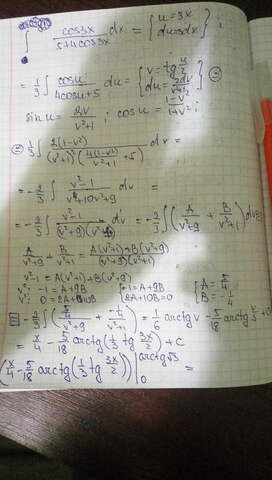 ∫ cos3x/(5+4cos3x) dx = {u=3x
du=3dx} ;
= 1/3 ∫ cosu/(4cosu+5) du = {v=tg u/2
du=2dv/(v²+1)} =
sinu = 2v/(v²+1) ; cosu = (1-v²)/(1+v²) ;
= 1/3 ∫ 2(1-v²)/((v²+1)²(4(1-v²)/(v²+1)+5)) dv =
= -2/3 ∫ (v²-1)/(v⁴+10v²+9) dv =
= -2/3 ∫ (v²-1)/((v²+9)(v²+1)) dv = -2/3 ∫ (A/(v²+9) + B/(v²+1)) dv =
A/(v²+9) + B/(v²+1) = (A(v²+1)+B(v²+9))/((v²+9)(v²+1))
v²-1 = A(v²+1)+B(v²+9)
-1 = A+9B
0 = 2A+10B
{A = 5/4
B = -1/4
= -2/3 ∫ ((5/4)/(v²+9) + (-1/4)/(v²+1)) = 1/6 arctg v - 5/18 arctg v/3 + C
= x/4 - 5/18 arctg(1/3 tg 3x/2) + C
(x/4 - 5/18 arctg(1/3 tg 3x/2)) | arctg√3
0 =